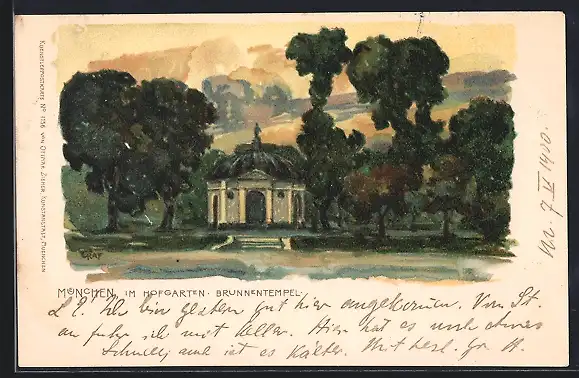 KUENSTLERPOSTKARTE No 1136 VON OTTMAR ZIEHER, KUNSTANSTALT, MUENCHEN
GRAF
MÜNCHEN. IM HOFGARTEN. BRUNNENTEMPEL.
Nr. 7 IV 1900.
L. E. Ich bin gestern gut hier angekommen. Von St.
an fuhr ich mit Hier hat es noch etwas
Schnee, auch ist es kälter. Mit herzl. Gr. H.